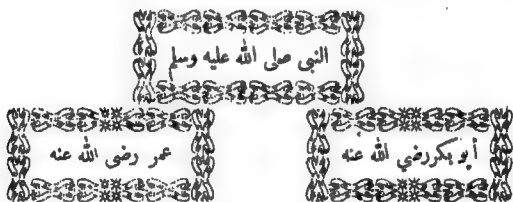 النبى صلى الله عليه وسلم
أبو بكر رضي الله عنه
عمر رضى الله عنه